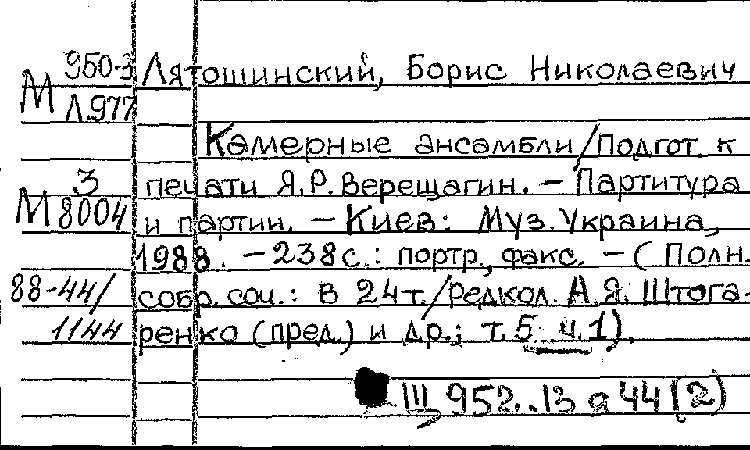 М 950-3 Лятошинский, Борис Николаевич
Л977
Камерные ансамбли/Подгот. к
М 3/8004 печати Я.Р.Верещагин. – Партитура
и партии. – Киев: Муз. Украина,
1988. – 238 с.: портр., факс. – (Полн.
88-44/ собр. соч.: В 24 т./Редкол. А.Я. Штога-
1144 ренко (пред.) и др.; т. 5 ч. 1).
III 952..13 я 44 (2)